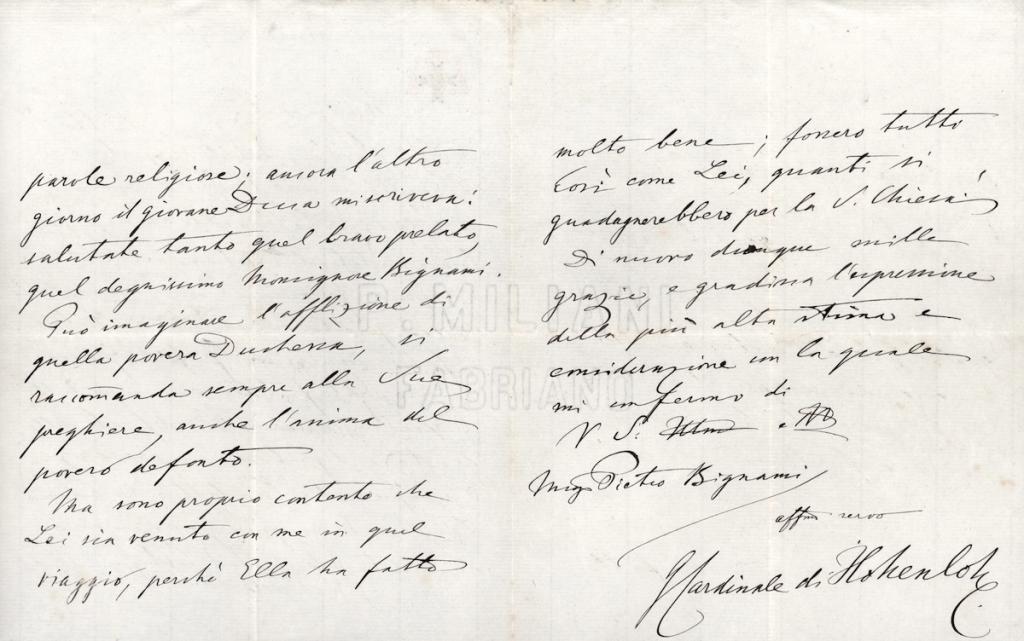 parole religiose; ancora l'altro
giorno il giovane Duca mi scriveva:
salutate tanto quel bravo prelato,
quel degnissimo Monsignore Bignami.
Può imaginare l'afflizione di
quella povera Duchessa, si
raccomanda sempre alla Sue
preghiere, anche l'anima del
povero defonto.
Ma sono proprio contento che
Lei sia venuto con me in quel
viaggio, perchè Ella ha fatto
molto bene; fossero tutti
Così come Lei, quanti si
guadagnerebbero per la S. Chiesa!
Di nuovo dunque mille
grazie, e gradissa l'espressione
della più alta stima e
considerazione con la quale
mi confermo di
V. S. Illma e
Msg Pietro Bignami
affmo servo
Cardinale di Hohenlohe
P. MILIANI
FABRIANO